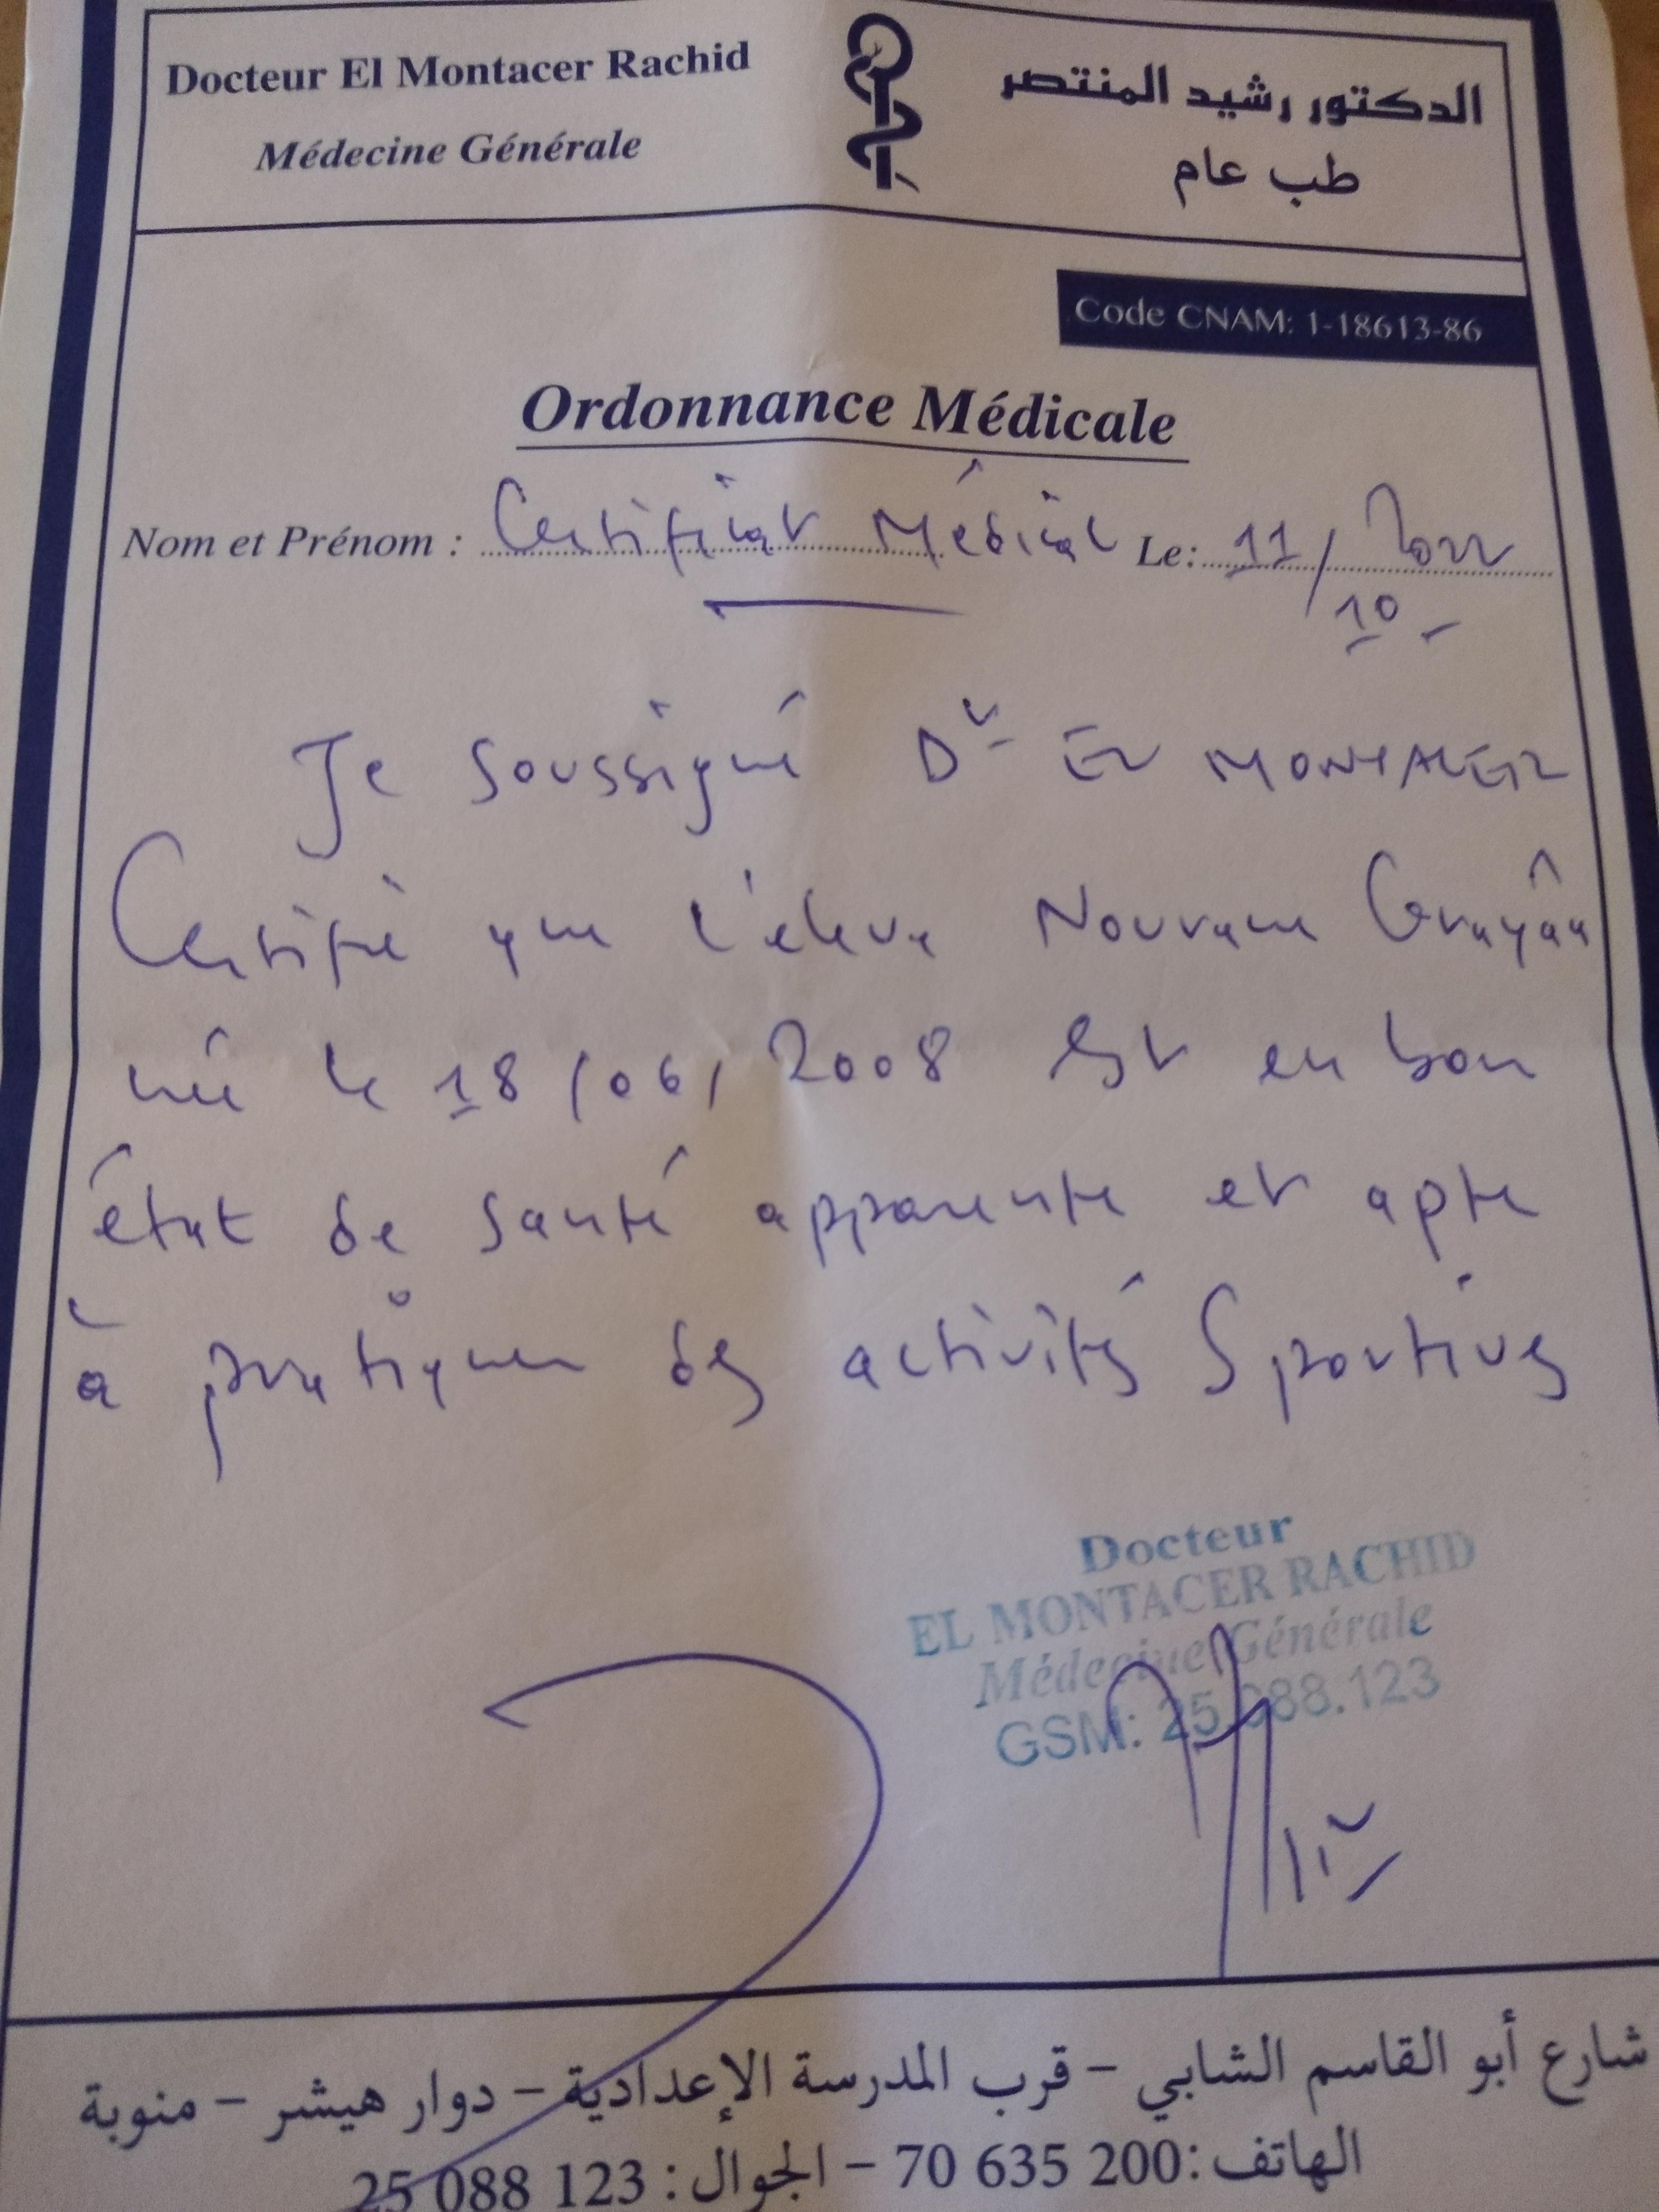 Docteur El Montacer Rachid
Médecine Générale
الدكتور رشيد المنتصر
طب عام
Code CNAM: 1-18613-86
Ordonnance Médicale
Nom et Prénom : Certificat Médical Le: 11/10 2022
Je soussigné Dr EL MONTACER
Certifie que l'eleve Nourane
née le 18/06/2008 est en bon
état de santé apparente et apte
à pratiquer des activités Sportives
Docteur
EL MONTACER RACHID
Médecine Générale
GSM: 25.088.123
شارع أبو القاسم الشابي - قرب المدرسة الإعدادية - دوار هيشر - منوبة
الهاتف: 70 635 200 - الجوال: 25 088 123